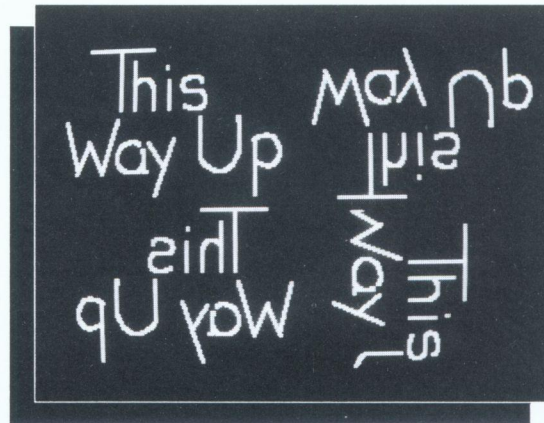 This
Way Up
This
Way Up
This
Way Up
This
Way